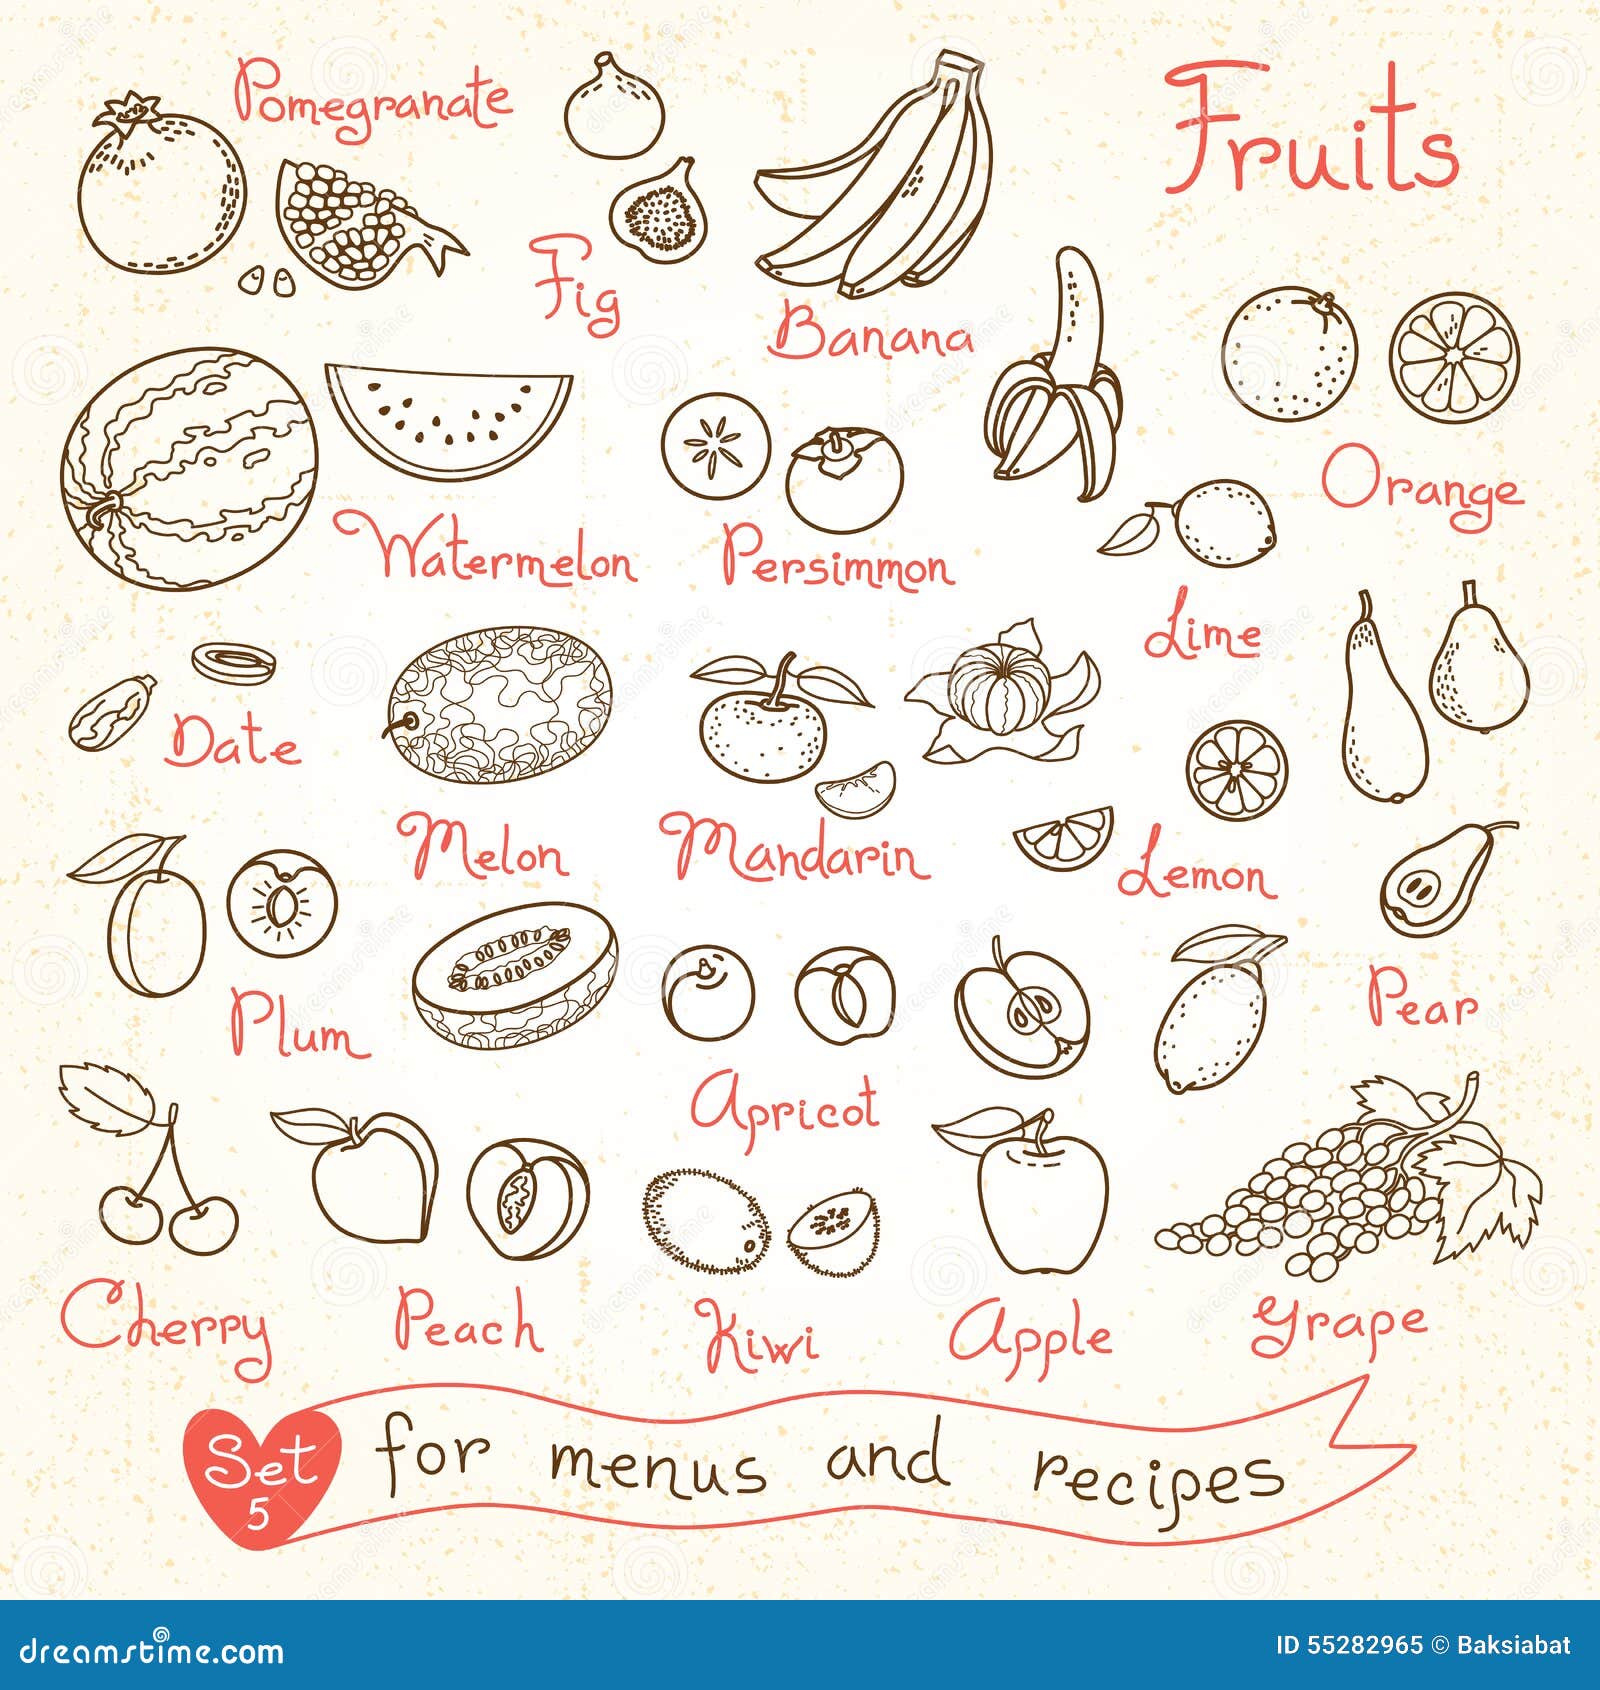 Fruits
Pomegranate
Fig
Banana
Orange
Watermelon
Persimmon
Lime
Date
Melon
Mandarin
Lemon
Plum
Pear
Apricot
Cherry
Peach
Kiwi
Apple
Grape
Set
5
for menus and recipes
dreamstime.com
ID 55282965 © Baksiabat